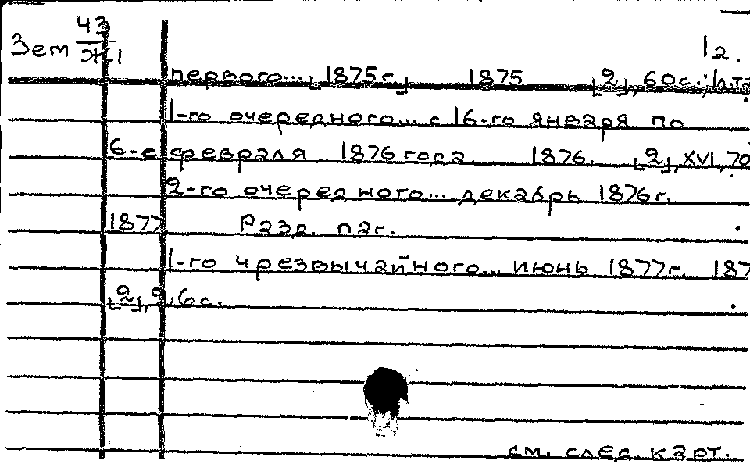 Зем 43/Ж1
12.
первого... [1875г.] 1875 [2], 60с.;
1-го очередного... с 16-го января по
6-е февраля 1876 года 1876. [2], XVI, 70
2-го очередного... декабрь 1876г.
1877 Разд. паг.
1-го чрезвычайного... июнь 1877г. 187
[2], 26с.
см. след. карт.